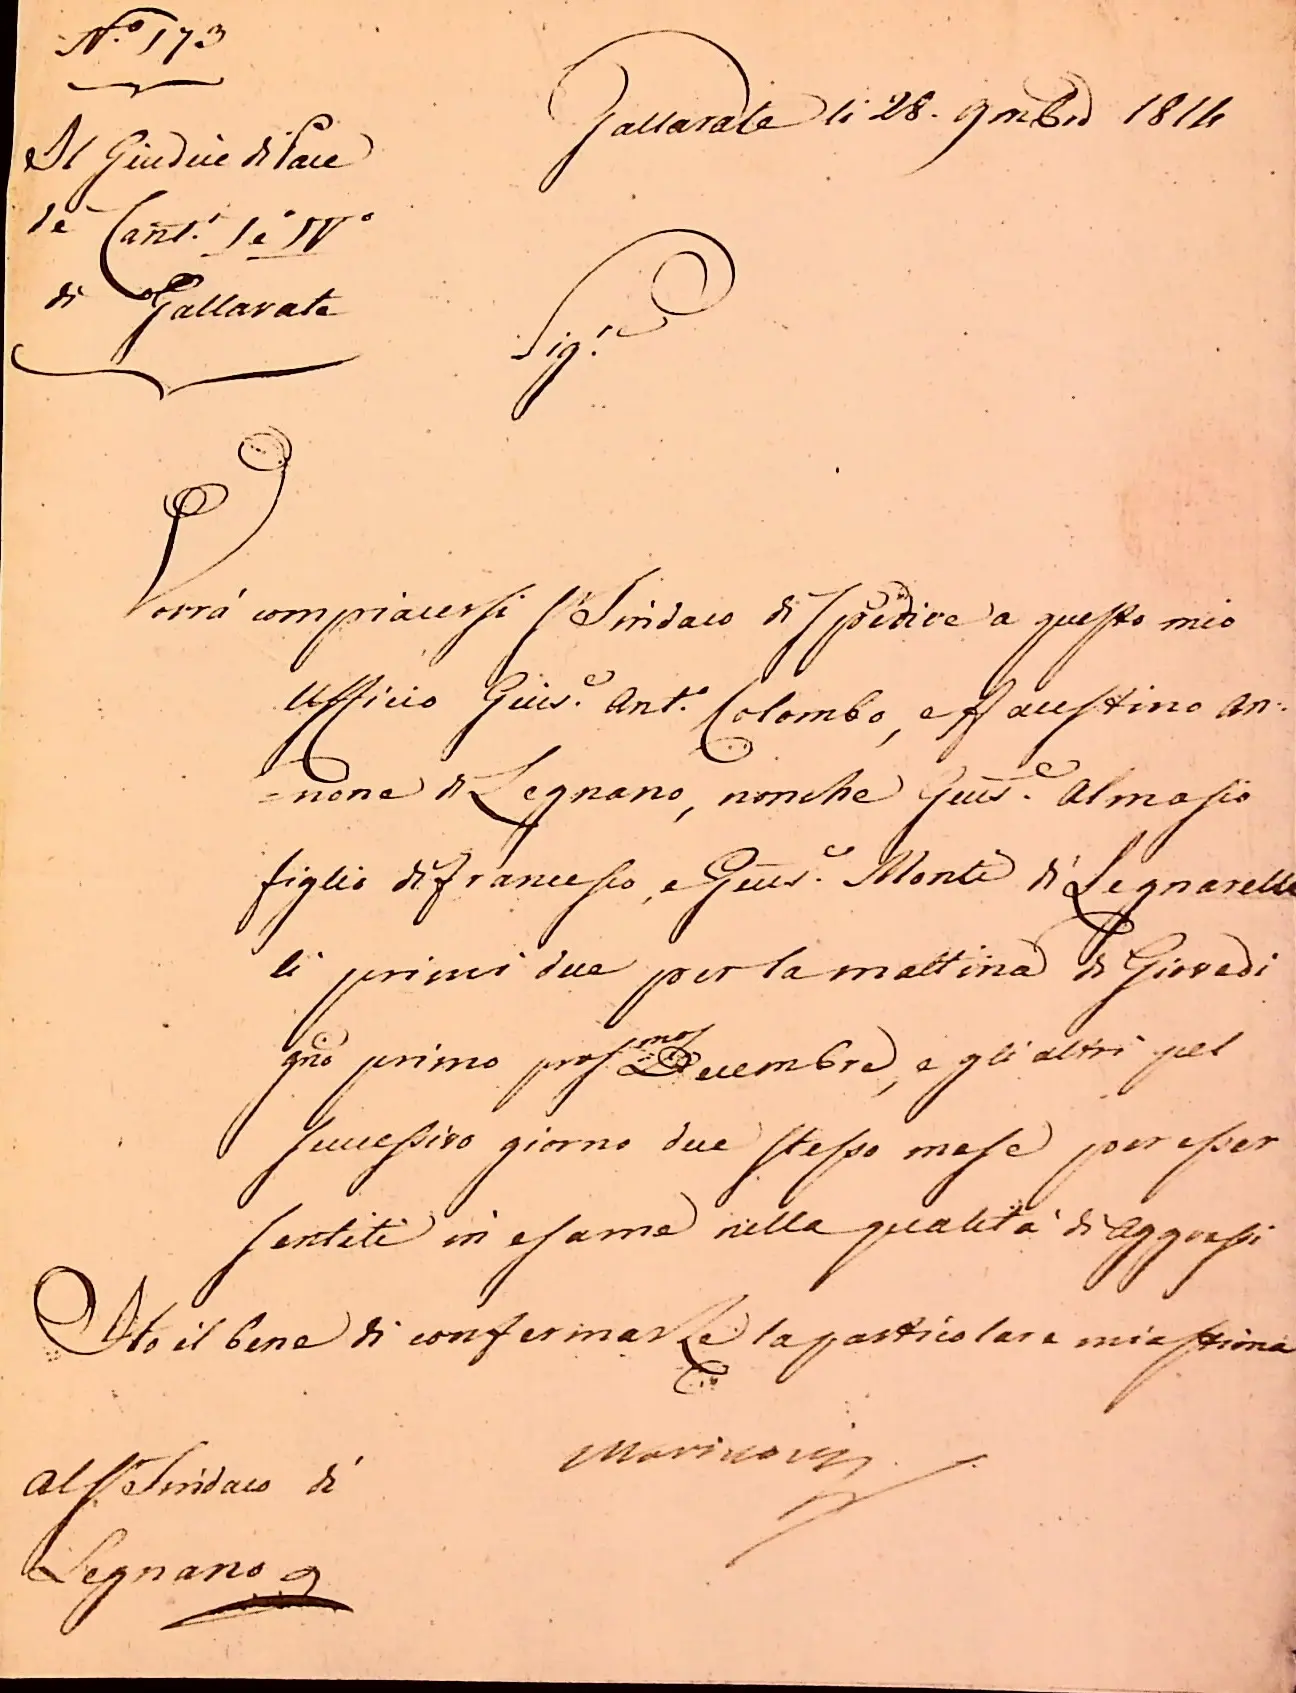 N.º 173
Gallarate li 28. 9mbre 1814
Il Giudice di Pace
de Cant.i I e IVº
di Gallarate
Sig.r
Vorrà compiacersi S.r Sindaco di spedire a questo mio
Ufficio Gius.e Ant.º Colombo, e Faustino An-
=none di Legnano, nonche Gius.e Almasio
figlio di Francesco, e Gius.e Monti di Legnarello
li primi due per la mattina di Giovedi
gno primo pros.mo Decembre, e gli altri pel
successivo giorno due stesso mese per esser
sentiti in esame nella qualità di Aggressi
Ho il bene di confermarLe la particolare mia stima
Al S.r Sindaco di
Legnano